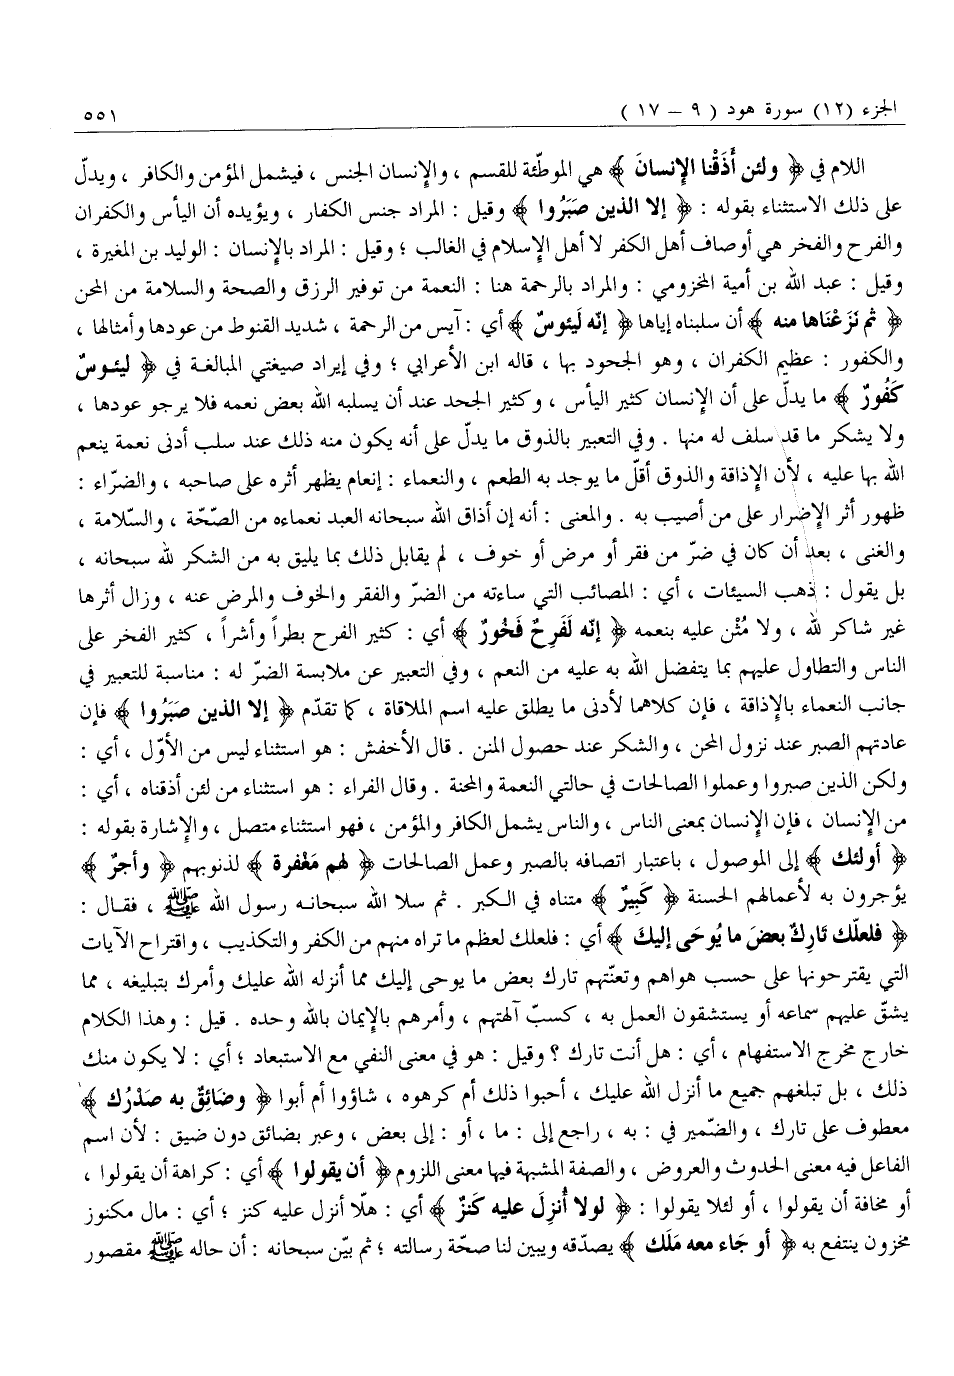 الجزء (١٢) سورة هود ( ٩ – ١٧ ) ٥٥١
اللام في ﴿ ولئن أَذَقْنا الإِنسانَ ﴾ هي الموطّئة للقسم ، والإِنسان الجنس ، فيشمل المؤمن والكافر ، ويدلّ
على ذلك الاستثناء بقوله : ﴿ إلا الذين صبَرُوا ﴾ وقيل : المراد جنس الكفار ، ويؤيده أن اليأس والكفران
والفرح والفخر هي أوصاف أهل الكفر لا أهل الإِسلام في الغالب ؛ وقيل : المراد بالإِنسان : الوليد بن المغيرة ،
وقيل : عبد الله بن أمية المخزومي : والمراد بالرحمة هنا : النعمة من توفير الرزق والصحة والسلامة من المحن
﴿ ثم نَزَعْنَاها منه ﴾ أن سلبناه إياها ﴿ إنّه لَيَئوسٌ ﴾ أي : آيس من الرحمة ، شديد القنوط من عودها وأمثالها ،
والكفور : عظيم الكفران ، وهو الجحود بها ، قاله ابن الأعرابي ؛ وفي إيراد صيغتي المبالغة في ﴿ ليئوسٌ
كَفُورٌ ﴾ ما يدلّ على أن الإِنسان كثير اليأس ، وكثير الجحد عند أن يسلبه الله بعض نعمه فلا يرجو عودها ،
ولا يشكر ما قد سلف له منها . وفي التعبير بالذوق ما يدلّ على أنه يكون منه ذلك عند سلب أدنى نعمة ينعم
الله بها عليه ، لأن الإِذاقة والذوق أقلّ ما يوجد به الطعم ، والنعماء : إنعام يظهر أثره على صاحبه ، والضرّاء :
ظهور أثر الإِضرار على من أصيب به . والمعنى : أنه إن أذاق الله سبحانه العبد نعماءه من الصّحّة ، والسّلامة ،
والغنى ، بعد أن كان في ضرّ من فقر أو مرض أو خوف ، لم يقابل ذلك بما يليق به من الشكر لله سبحانه ،
بل يقول : ذهب السيئات ، أي : المصائب التي ساءته من الضرّ والفقر والخوف والمرض عنه ، وزال أثرها
غير شاكر لله ، ولا مُثْن عليه بنعمه ﴿ إنّه لَفَرِحٌ فَخُورٌ ﴾ أي : كثير الفرح بطراً وأشراً ، كثير الفخر على
الناس والتطاول عليهم بما يتفضل الله به عليه من النعم ، وفي التعبير عن ملابسة الضرّ له : مناسبة للتعبير في
جانب النعماء بالإِذاقة ، فإن كلاهما لأدنى ما يطلق عليه اسم الملاقاة ، كما تقدّم ﴿ إلا الذين صبَرُوا ﴾ فإن
عادتهم الصبر عند نزول المحن ، والشكر عند حصول المنن . قال الأخفش : هو استثناء ليس من الأوّل ، أي :
ولكن الذين صبروا وعملوا الصالحات في حالتي النعمة والمحنة . وقال الفراء : هو استثناء من لئن أذقناه ، أي :
من الإِنسان ، فإن الإِنسان بمعنى الناس ، والناس يشمل الكافر والمؤمن ، فهو استثناء متصل ، والإِشارة بقوله :
﴿ أولئك ﴾ إلى الموصول ، باعتبار اتصافه بالصبر وعمل الصالحات ﴿ لهم مَغْفرة ﴾ لذنوبهم ﴿ وأجرٌ ﴾
يؤجرون به لأعمالهم الحسنة ﴿ كَبِيرٌ ﴾ متناه في الكبر . ثم سلا الله سبحانه رسول الله ﷺ ، فقال :
﴿ فلعلّك تَاركٌ بعضَ ما يُوحَى إليكَ ﴾ أي : فلعلك لعظم ما تراه منهم من الكفر والتكذيب ، واقتراح الآيات
التي يقترحونها على حسب هواهم وتعنّتهم تارك بعض ما يوحى إليك مما أنزله الله عليك وأمرك بتبليغه ، مما
يشقّ عليهم سماعه أو يستشقون العمل به ، كسبّ آلهتهم ، وأمرهم بالإِيمان بالله وحده . قيل : وهذا الكلام
خارج مخرج الاستفهام ، أي : هل أنت تارك ؟ وقيل : هو في معنى النفي مع الاستبعاد ؛ أي : لا يكون منك
ذلك ، بل تبلغهم جميع ما أنزل الله عليك ، أحبوا ذلك أم كرهوه ، شاؤوا أم أبوا ﴿ وضَائِقٌ به صَدْرُك ﴾
معطوف على تارك ، والضّمير في : به ، راجع إلى : ما ، أو : إلى بعض ، وعبر بضائق دون ضيق : لأن اسم
الفاعل فيه معنى الحدوث والعروض ، والصفة المشبهة فيها معنى اللزوم ﴿ أن يقولوا ﴾ أي : كراهة أن يقولوا ،
أو مخافة أن يقولوا ، أو لئلا يقولوا : ﴿ لولا أُنزِلَ عليه كَنزٌ ﴾ أي : هلّا أنزل عليه كنز ؛ أي : مال مكنوز
مخزون ينتفع به ﴿ أو جَاء معه مَلَك ﴾ يصدّقه ويبين لنا صحّة رسالته ؛ ثم بيّن سبحانه : أن حاله ﷺ مقصور